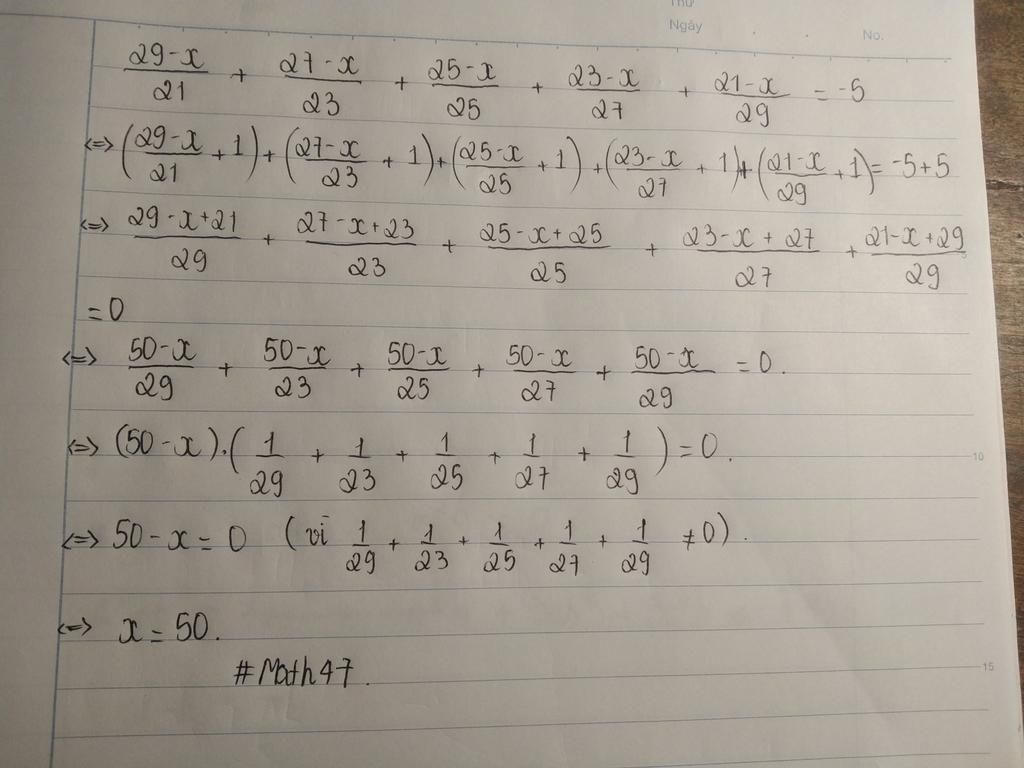 Thứ
Ngày No.
29-x/21 + 27-x/23 + 25-x/25 + 23-x/27 + 21-x/29 = -5
<=> (29-x/21 + 1) + (27-x/23 + 1) + (25-x/25 + 1) + (23-x/27 + 1) + (21-x/29 + 1) = -5+5
<=> 29-x+21/29 + 27-x+23/23 + 25-x+25/25 + 23-x+27/27 + 21-x+29/29
= 0
<=> 50-x/29 + 50-x/23 + 50-x/25 + 50-x/27 + 50-x/29 = 0.
<=> (50-x).(1/29 + 1/23 + 1/25 + 1/27 + 1/29) = 0.
10
<=> 50-x = 0 (vì 1/29 + 1/23 + 1/25 + 1/27 + 1/29 ≠ 0).
<=> x = 50.
#Math47.
15